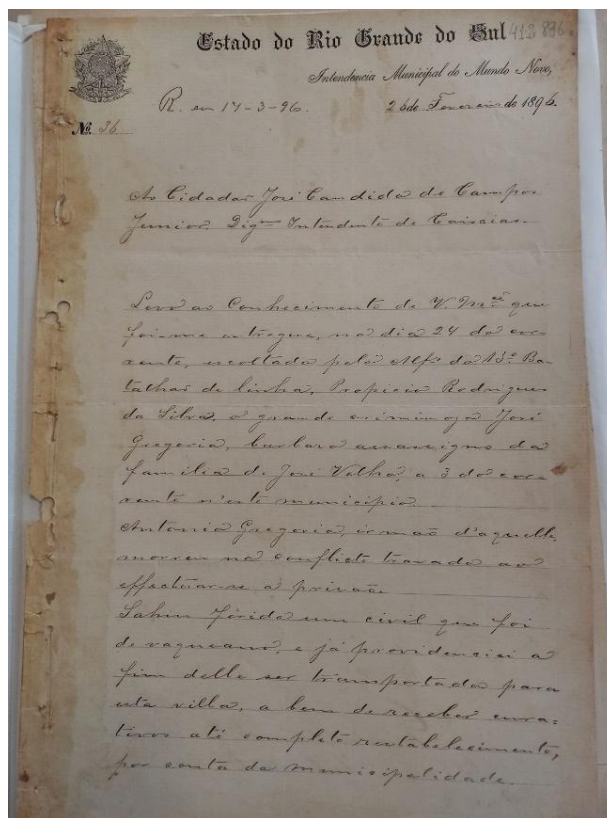 Estado do Rio Grande do Sul
Intendencia Municipal do Mundo Novo,
R. em 17-3-96.
26 de Fevereiro de 1896.
Nº 36
Ao Cidadão José Candido de Campos
Junior. Dig.mo Intendente de Caxias.
Levo ao Conhecimento de V. M.cê que
foi-me entregue, no dia 24 do cor-
rente, escoltado pelo Alfs do 13º Ba-
talhão de linha, Propicio Rodrigues
da Silva, o grande criminoso José
Gregorio, barbaro assassigno da
familia de José Velho, a 3 do cor-
rente n'este municipio.
Antonio Gregorio, irmão d'aquelle,
morreu no conflicto travado ao
effectuar-se a prisão.
Sahiu ferido um civil que foi
de vaqueano, e já providenciei a
fim delle ser transportado para
esta villa, a bem de receber cura-
tivos até completo restabelecimento,
por conta da municipalidade.